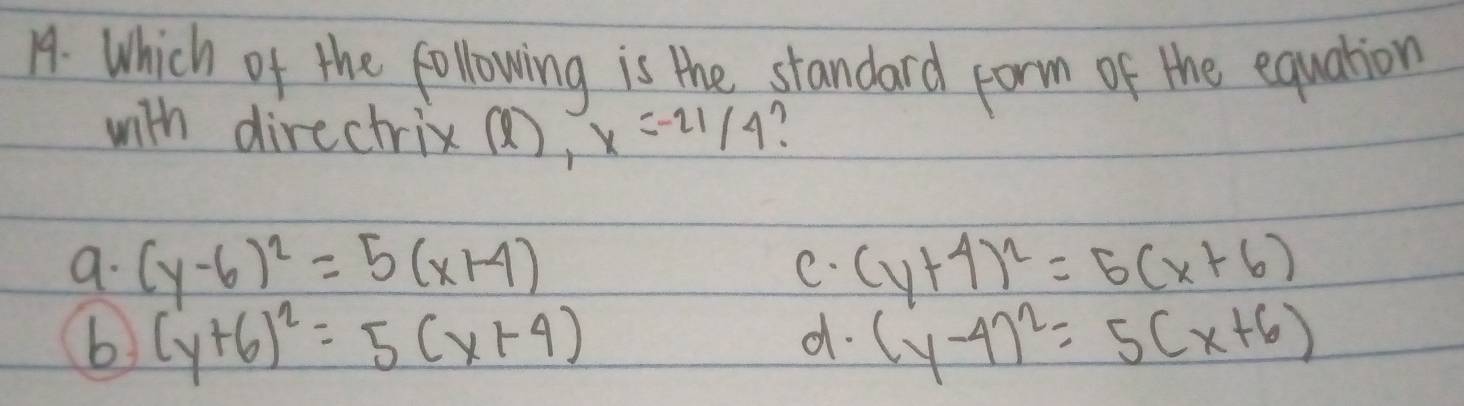 14. Which of the following is the standard form of the equation
with directrix (l), x = -21/4?
a. (y-6)² = 5(x+4)
c. (y+4)² = 5(x+6)
b. (y+6)² = 5(x+4)
d. (y-4)² = 5(x+6)